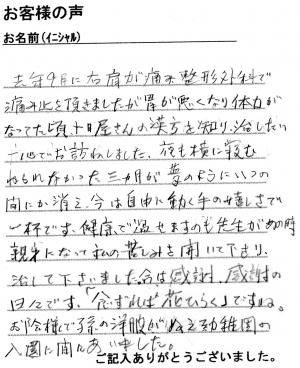 お客様の声
お名前(イニシャル)
去年9月に右肩が痛み整形外科で
痛み止を頂きましたが胃が悪くなり体力が
なってた頃 十日屋さんの漢方を知り、治したい
一心でお訪ねしました。夜も横に寝む
ねられなかった三カ月が夢のようにいつの
間にか消え、今は自由に動く手の嬉しさで
一杯です。健康で過せますのも先生があの時
親身になって私の苦しみを聞いて下さり、
治して下さいました。今は感謝、感謝の
日々です。「念ずれば花ひらく」ですね。
お陰様で孫の洋服がぬえ幼稚園の
入園に間にあいました。
ご記入ありがとうございました。